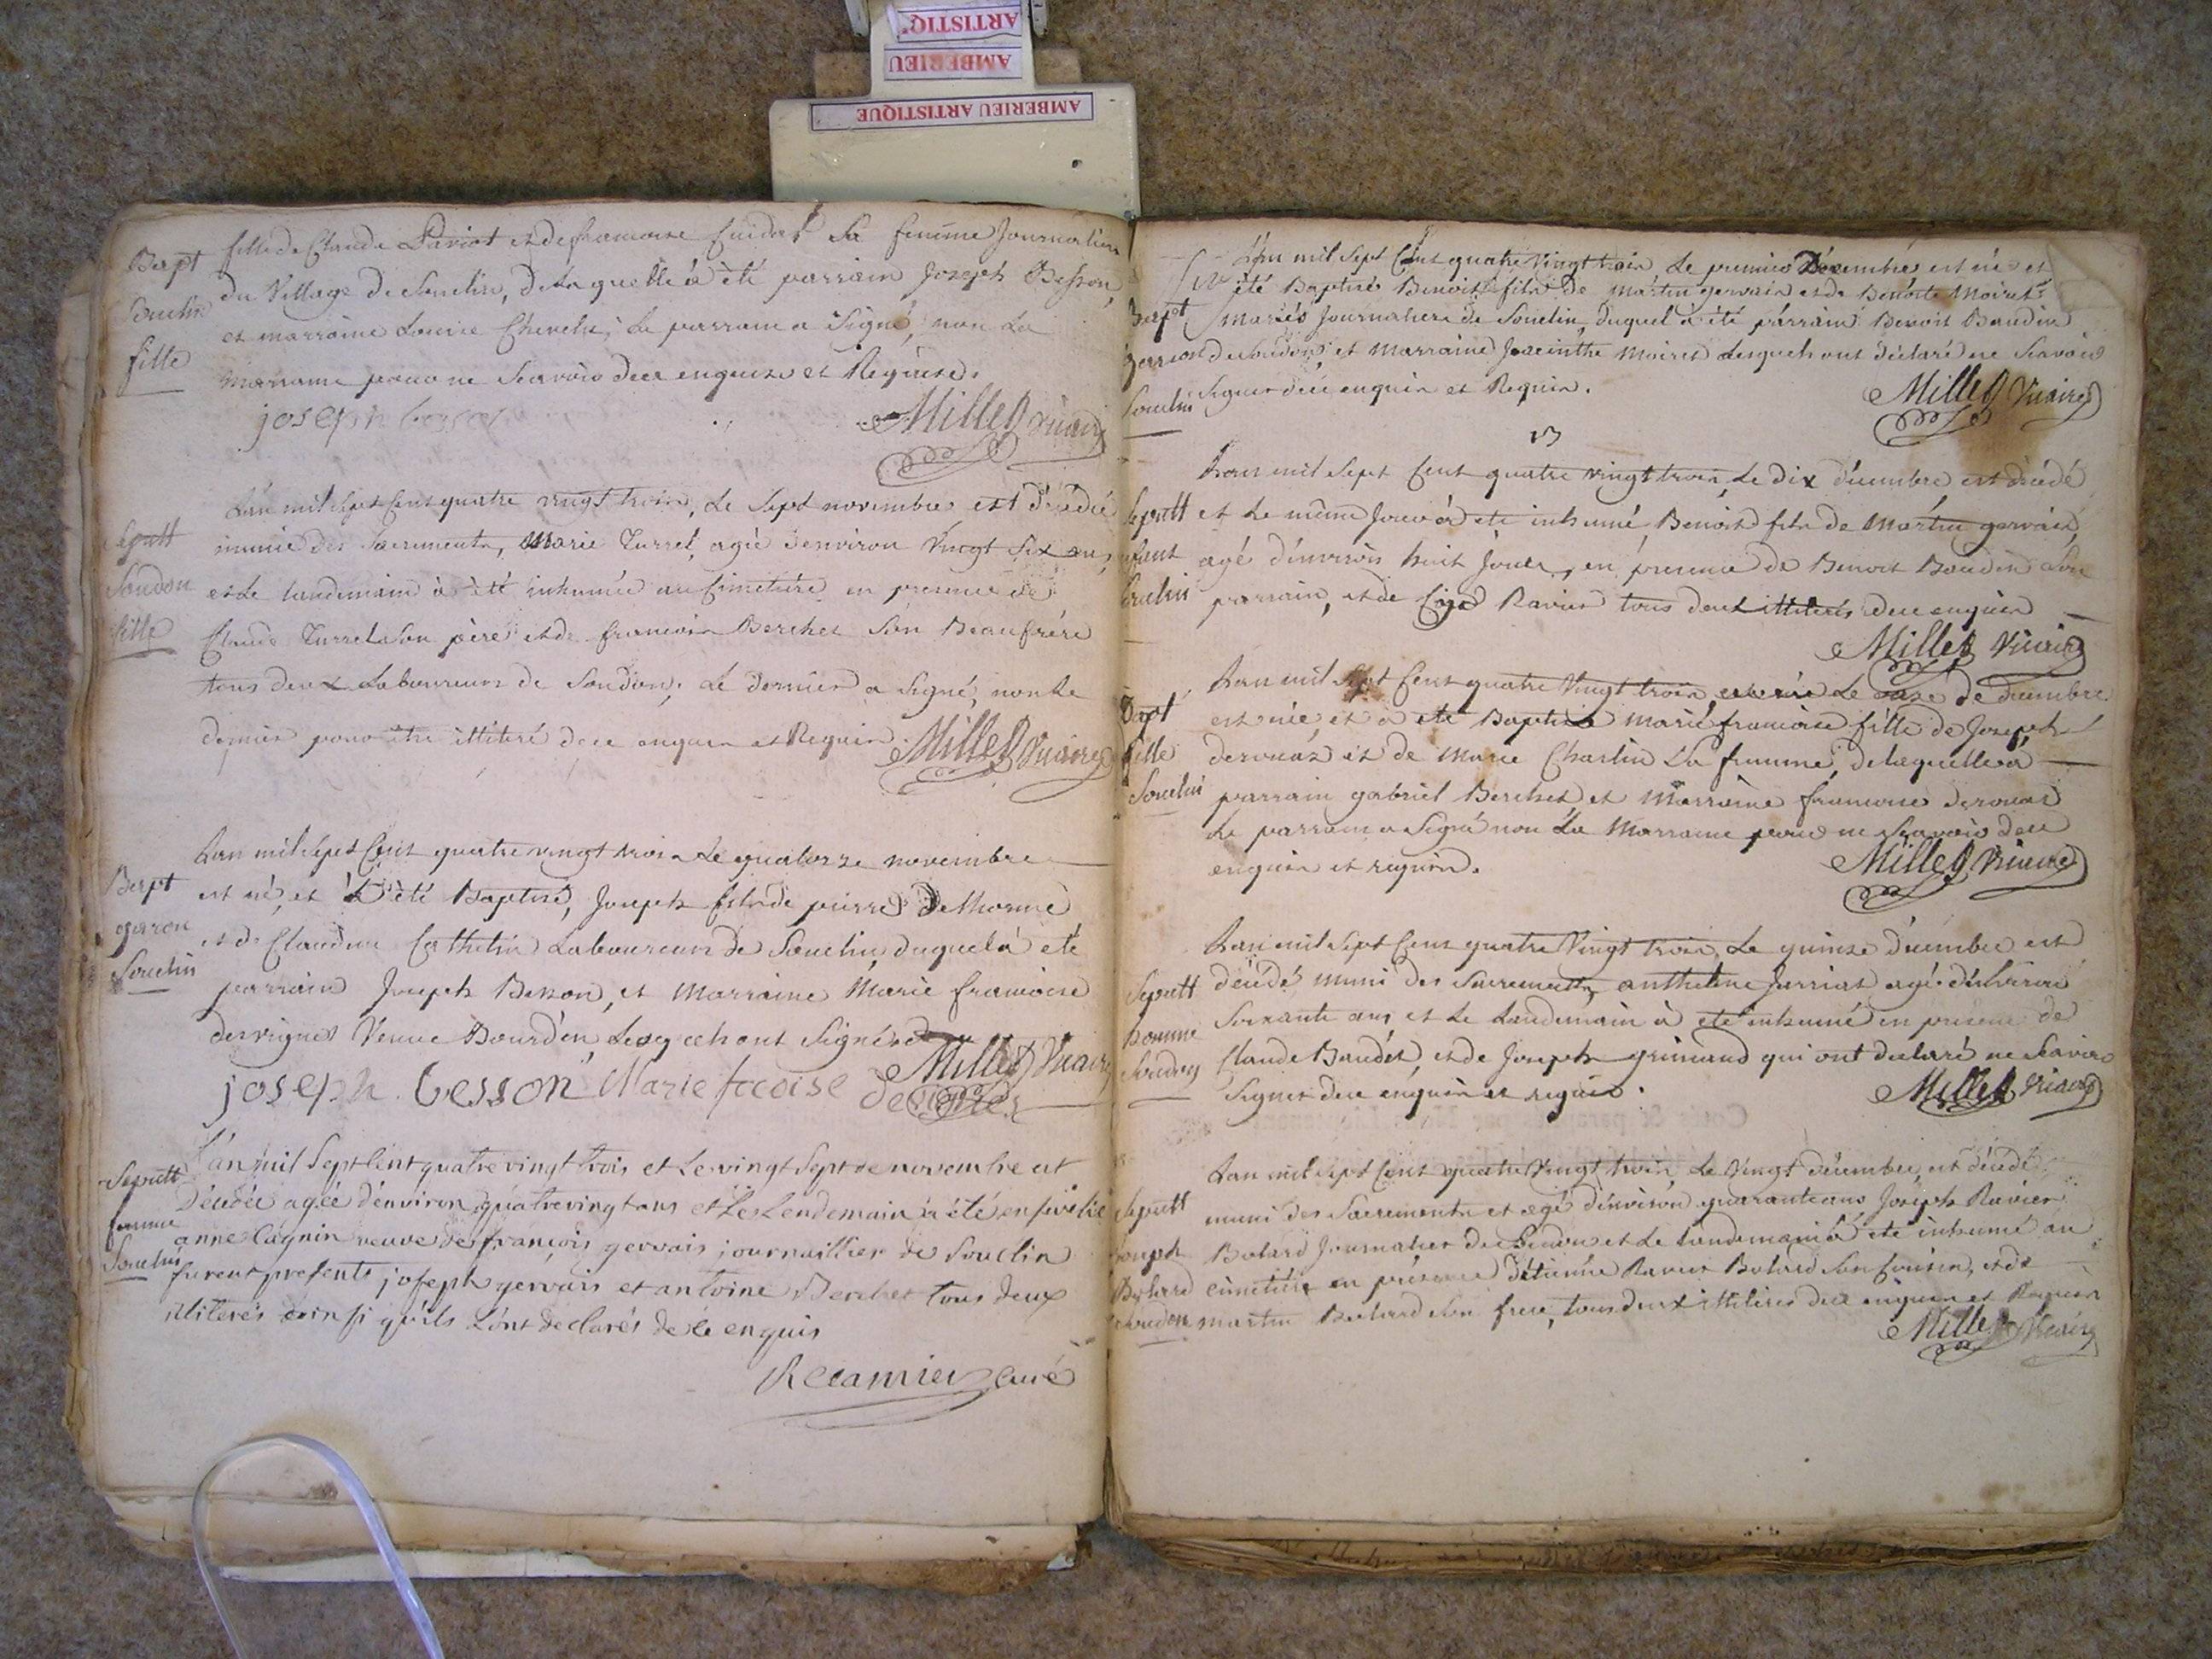 ARTISTIQ
AMBERIEU
AMBERIEU ARTISTIQUE
Bapt
Souclin
fille
fille de Claude Pariot et de francoise Cuidat sa femme Journalier
du Village de Souclin, de laquelle à été parrain Joseph Besson,
et marraine Louise Chevelu; Le parrain a signé, non La
marraine pour ne Scavoir dece enquise et Requise.
joseph besson
Millet Vicaire
Sepult
Soudon
fille
L'an mil Sept Cent quatre vingt trois, Le Sept novembre est décédée
munie des Sacrements, Marie Turrel, agée d'environ Vingt Six ans,
et Le landemain à été inhumée au Cimetière en presence de
Claude Turrel Son père et de francois Berchet Son Beaufrére
tous deux Laboureurs de Soudon. Le dernier a Signé, non Le
premier pour etre illiteré dece enquis et Requis.
Millet Vicaire
Bapt
garcon
Souclin
Lan mil Sept Cent quatre vingt trois Le quatorze novembre
est né, et à été Baptisé, Joseph fils de pierre Delhorme
et de Claudine Cathelin Laboureurs de Souclin duquel à eté
parrain Joseph Besson, et Marraine Marie francoise
desvignes Veuve Bourdin, Lesquels ont Signés
Millet Vicaire
joseph besson Marie fcoise desvignes
Sepult
femme
Souclin
L'an mil Sept Cent quatre vingt trois et Le vingt Sept de novembre est
Décédée agée d'environ quatre vingt ans et Le Lendemain à été ensevelie
anne Cagnin veuve de françois gervais journaillier de Souclin
furent presents joseph gervais et antoine Berchet tous deux
illiterés ainsi qu'ils L'ont declarés de ce enquis
Recamier Curé
Bapt
garcon
Souclin
L'an mil Sept Cent quatre Vingt trois, Le premier Decembre est né et
été Baptisé Benoit fils de Martin gervais et de Benoite Moiret
mariés Journaliers de Souclin, duquel à été parrain Benoit Baudin
de Soudon, et Marraine Jacinthe Moiret Lesquels ont déclaré ne Scavoir
Signer dece enquis et Requis.
Millet Vicaire
Sepult
enfant
Souclin
Lan mil Sept Cent quatre vingt trois, Le dix décembre est décédé
et Le même Jour à eté inhumé, Benoit fils de Martin gervais,
agé d'environ huit Jours, en presence de Benoit Baudin Son
parrain, et de Ravier tous deux illiterés dece enquis
Millet Vicaire
Bapt
fille
Souclin
Lan mil Sept Cent quatre Vingt trois, Le de décembre
est née, et à eté Baptisé Marie francoise fille de Joseph
derouas et de Marie Charlin Sa femme, de laquelle à
parrain gabriel Berchet, et Marraine francoise derouas
Le parrain a Signé non La Marraine pour ne Scavoir dece
enquis et requis.
Millet Vicaire
Sepult
homme
Soudon
Lan mil Sept Cent quatre Vingt trois, Le quinze décembre est
décédé muni des Sacrements, anthelme Jarriat agé d'environ
Soixante ans, et Le Landemain à eté inhumé en présence de
Claude Baudet, et de Joseph grimand qui ont declaré ne Scavoir
Signer dece enquis et requis.
Millet Vicaire
Sepult
Joseph
Botard
Soudon
Lan mil Sept Cent quatre Vingt trois, Le Vingt décembre, est décédé
muni des Sacrements et agé d'environ quarante ans Joseph Ravier
Botard Journalier de Soudon et Le landemain à eté inhumé au
cimetière en présence d'étienne Ravier Botard Son Cousin, et de
martin Botard Son frere, tous deux illiterés dece enquis et Requis
Millet Vicaire